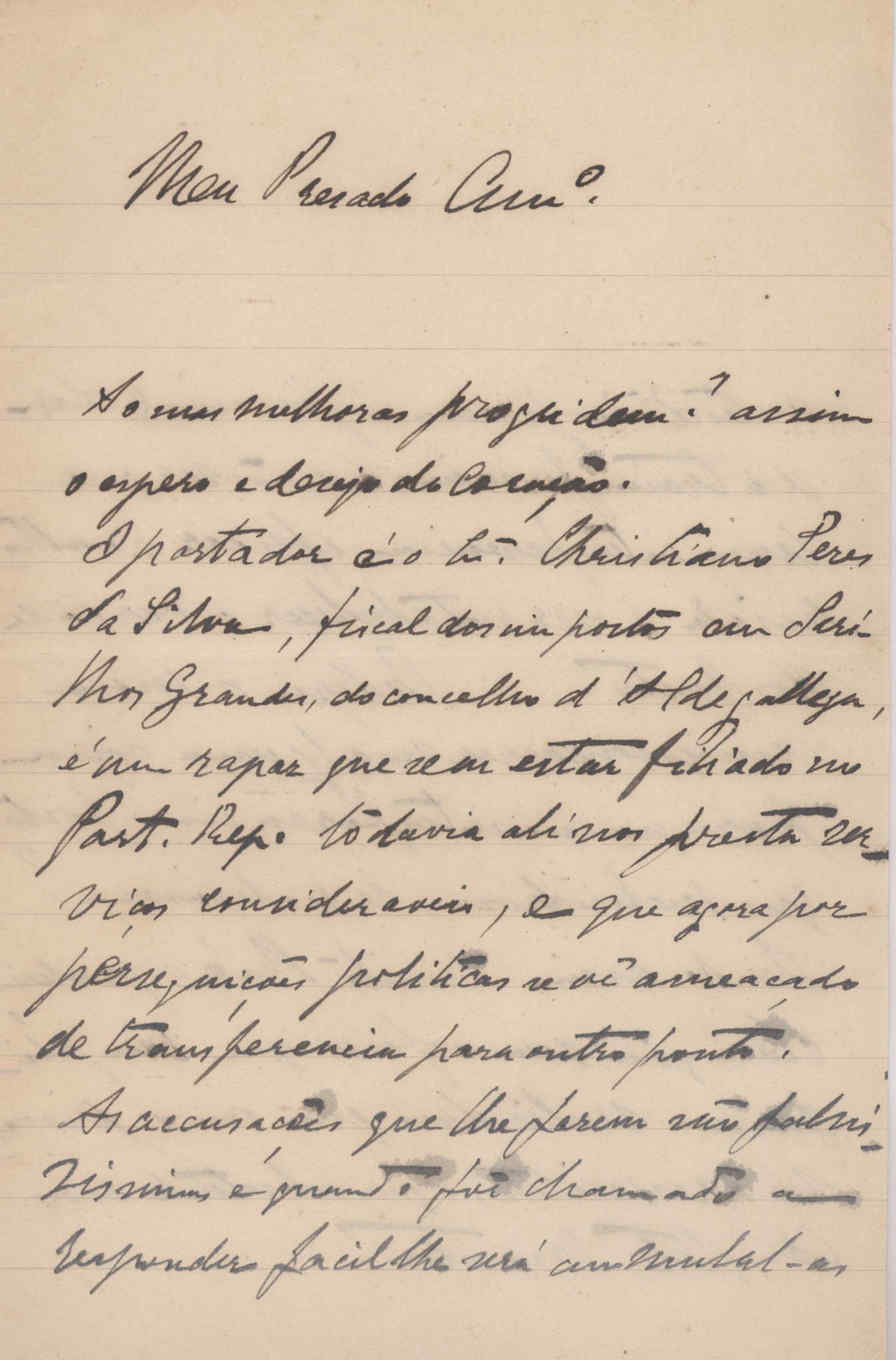 Meu Presado Am.º
As suas melhoras proguidem? assim
o espero e desejo do Coração.
O portador é o Sr. Christiano Peres
da Silva, fiscal dos impostos em Sari-
lhos Grandes, do concelho d'Aldegallega,
é um rapaz que sem estar filiado no
Part. Rep. todavia ali nos presta ser-
viços consideraveis, e que agora por
perseguições politicas se vê ameaçado
de transferencia para outro ponto.
As accusações que lhe fazem são falsis-
sissimas e quando fôr chamado a
responder facil lhe será